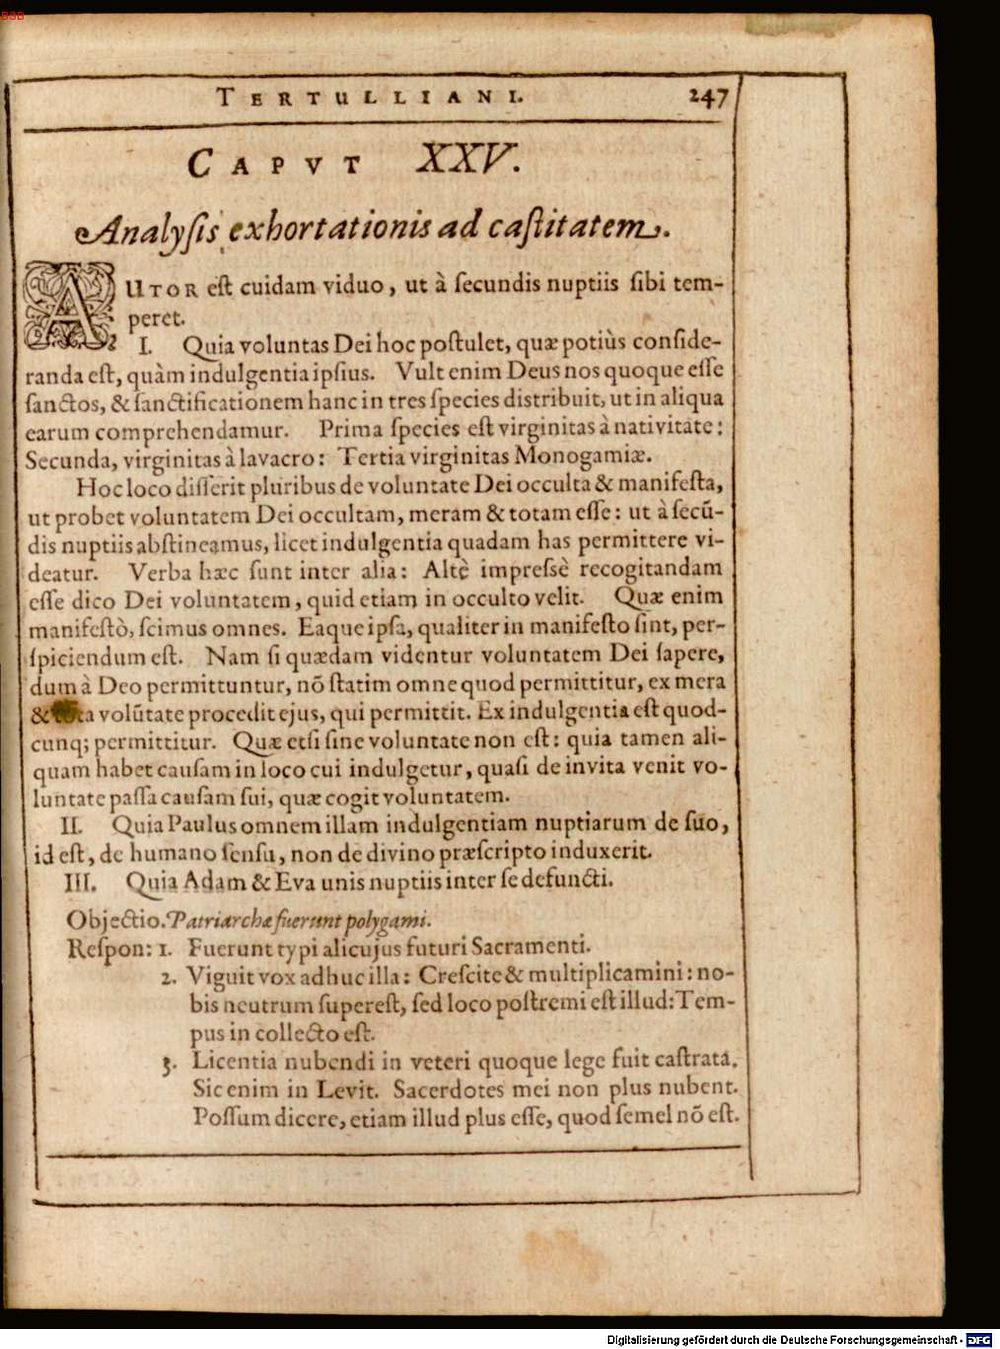 BSB
TERTULLIANI. 247
CAPVT XXV.
Analyſis exhortationis ad caſtitatem.
AUTOR eſt cuidam viduo, ut à ſecundis nuptiis ſibi tem-
peret.
I. Quia voluntas Dei hoc poſtulet, quæ potiùs conſide-
randa eſt, quàm indulgentia ipſius. Vult enim Deus nos quoque eſſe
ſanctos, & ſanctificationem hanc in tres ſpecies diſtribuit, ut in aliqua
earum comprehendamur. Prima ſpecies eſt virginitas à nativitate:
Secunda, virginitas à lavacro: Tertia virginitas Monogamiæ.
Hoc loco diſſerit pluribus de voluntate Dei occulta & manifeſta,
ut probet voluntatem Dei occultam, meram & totam eſſe: ut à ſecū-
dis nuptiis abſtineamus, licet indulgentia quadam has permittere vi-
deatur. Verba hæc ſunt inter alia: Altè impreſsè recogitandam
eſſe dico Dei voluntatem, quid etiam in occulto velit. Quæ enim
manifeſtò, ſcimus omnes. Eaque ipſa, qualiter in manifeſto ſint, per-
ſpiciendum eſt. Nam ſi quædam videntur voluntatem Dei ſapere,
dum à Deo permittuntur, nō ſtatim omne quod permittitur, ex mera
& tota volūtate procedit ejus, qui permittit. Ex indulgentia eſt quod-
cunq; permittitur. Quæ etſi ſine voluntate non eſt: quia tamen ali-
quam habet cauſam in loco cui indulgetur, quaſi de invita venit vo-
luntate paſſa cauſam ſui, quæ cogit voluntatem.
II. Quia Paulus omnem illam indulgentiam nuptiarum de ſuo,
id eſt, de humano ſenſu, non de divino præſcripto induxerit.
III. Quia Adam & Eva unis nuptiis inter ſe defuncti.
Objectio. Patriarchæ fuerunt polygami.
Reſpon: 1. Fuerunt typi alicujus futuri Sacramenti.
2. Viguit vox adhuc illa: Creſcite & multiplicamini: no-
bis neutrum ſupereſt, ſed loco poſtremi eſt illud: Tem-
pus in collecto eſt.
3. Licentia nubendi in veteri quoque lege fuit caſtrata.
Sic enim in Levit. Sacerdotes mei non plus nubent.
Poſſum dicere, etiam illud plus eſſe, quod ſemel nō eſt.
Digitalisierung gefördert durch die Deutsche Forschungsgemeinschaft - DFG